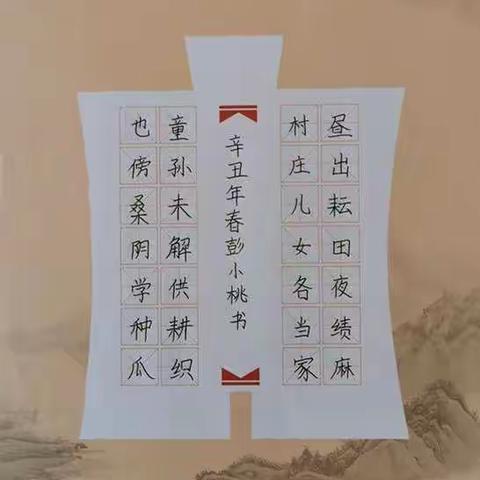 昼出耘田夜绩麻
村庄儿女各当家
辛丑年春彭小桃书
童孙未解供耕织
也傍桑阴学种瓜